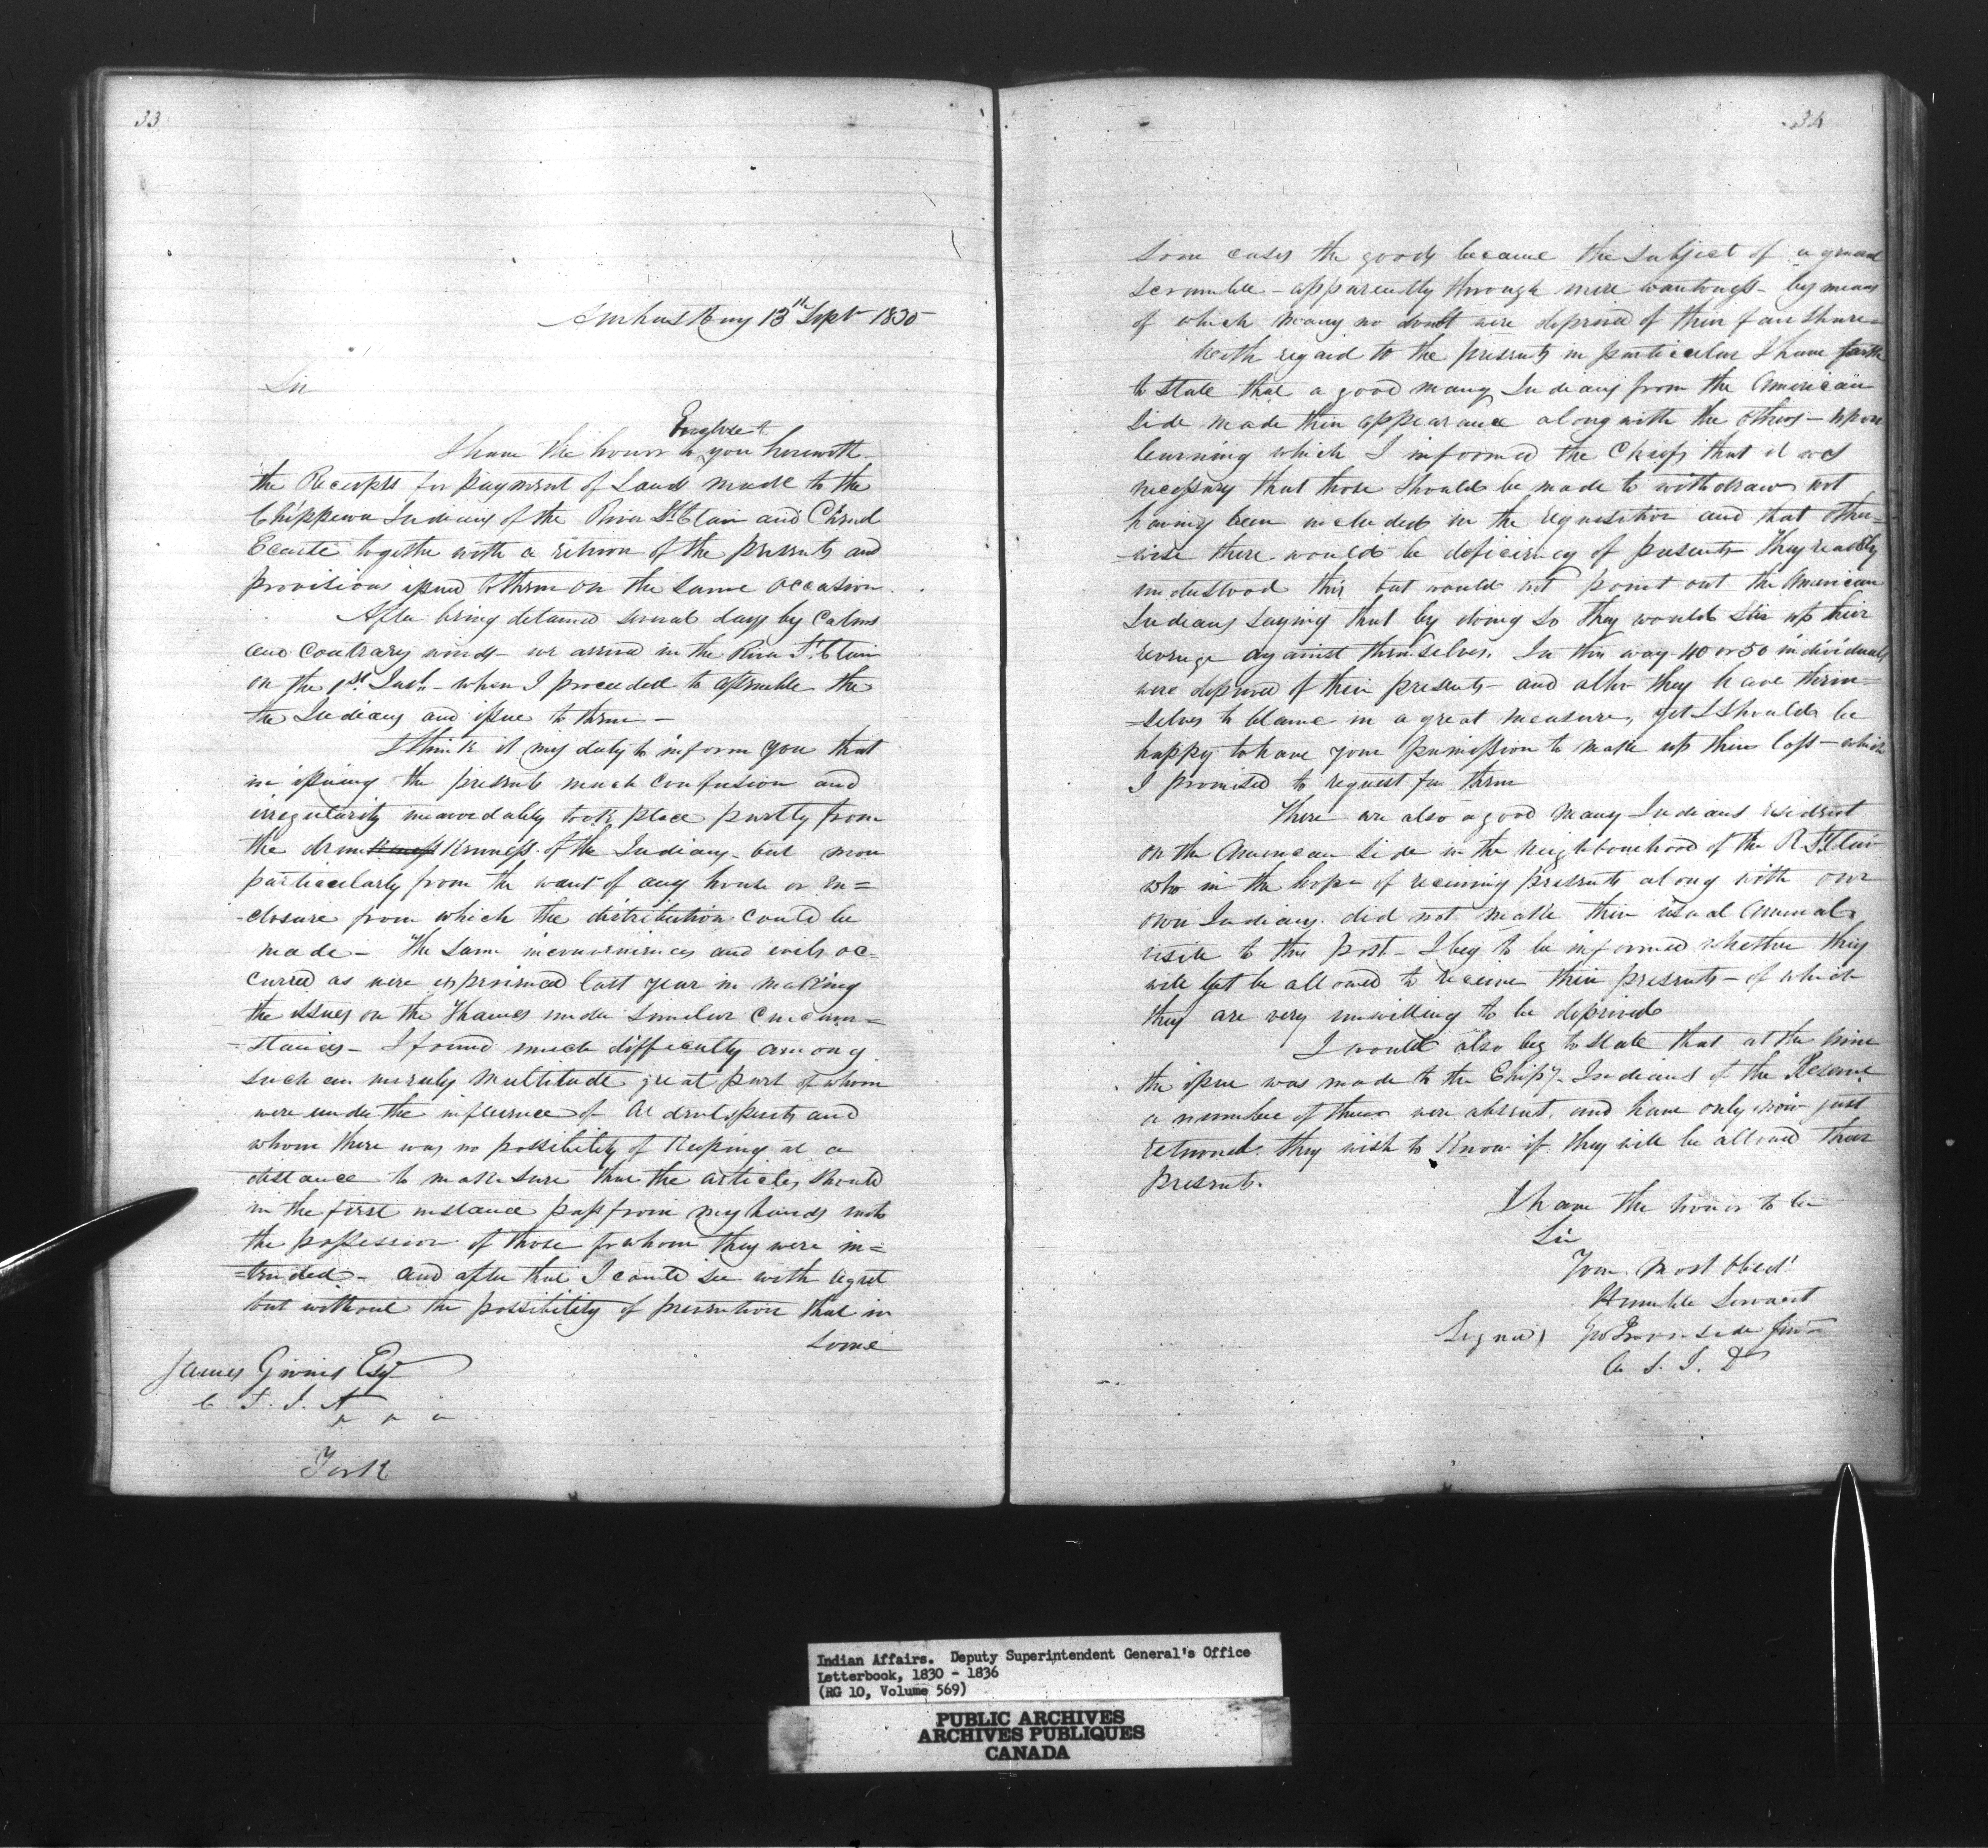 33
Amherstburg 13th Sept 1830
Sir
Enclose
I have the honor to you herewith
the Receipts for payment of Lands made to the
Chippewa Indians of the River St Clair and Chenal
Ecarte together with a return of the presents and
provisions issued to them on the same occasion.
After being detained several days by Calms
and Contrary winds we arrived in the River St Clair
on the 1st Inst. - when I proceeded to assemble the
the Indians and issue to them -
I think it my duty to inform you that
in issuing the presents much confusion and
irregularity unavoidably took place partly from
the drunkenness of the Indians - but more
particularly from the want of any house or en=
-closure from which the distribution could be
made - The same inconveniences and evils oc=
curred as were experienced last year in making
the issues on the Thames under similar circum=
=stances - I found much difficulty among
such an unruly multitude great part of whom
were under the influence of Ardent spirits and
whom there was no possibility of keeping at a
distance to make sure that the articles should
in the first instance pass from my hands into
the possession of those for whom they were in=
=tended - and after that I could see with regret
but without the possibility of prevention that in
some
James Givins Esqr
C. S. I. A
York
34
some cases the goods became the subject of a general
scramble - apparently through mere wantonness - by means
of which many no doubt were deprived of their fair share -
With regard to the presents in particular I have
to state that a good many Indians from the American
side made their appearance along with the others - upon
learning which I informed the Chiefs that it was
necessary that those should be made to withdraw not
having been included in the requisition and that other=
-wise there would be deficiency of presents they readily
understood this but would not point out the American
Indians saying that by doing so they would stir up their
revenge against themselves. In this way 40 or 50 individuals
were deprived of their presents - and altho they have them=
=selves to blame in a great measure, yet I should be
happy to have your permission to make up their loss - which
I promised to request for them
There are also a good many Indians resident
on the American side in the neighbourhood of the R. St Clair
who in the hope of receiving presents along with our
own Indians did not make their usual annual
visit to this post - I beg to be informed whether they
will yet be allowed to receive their presents - of which
they are very unwilling to be deprived
I would also beg to state that at the time
the issue was made to the Chip. Indians of the Reserve
a number of them were absent, and have only now just
returned they wish to know if they will be allowed their
presents.
I have the honor to be
Sir
Your most Obedt
Humble Servant
Signed) Geo Ironside Junr
S. I. D
Indian Affairs. Deputy Superintendent General's Office
Letterbook, 1830 - 1836
(RG 10, Volume 569)
PUBLIC ARCHIVES
ARCHIVES PUBLIQUES
CANADA